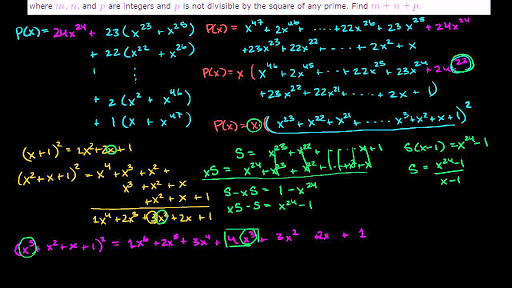 where m, n, and p are integers and p is not divisible by the square of any prime. Find m + n + p.
P(x) = 24x^24 + 23(x^23 + x^25)
+ 22(x^22 + x^26)
+ 2(x^2 + x^46)
+ 1(x + x^47)
P(x) = x^47 + 2x^46 + ..... + 22x^26 + 23x^25 + 24x^24
+23x^23 + 22x^22 + ..... + 2x^2 + x
P(x) = x(x^46 + 2x^45 + ... + 22x^25 + 23x^24 + 24x^23
+23x^22 + 22x^21 + ... + 2x + 1)
P(x) = x(x^23 + x^22 + x^21 + ..... x^3 + x^2 + x + 1)^2
(x+1)^2 = x^2 + 2x + 1
(x^2 + x + 1)^2 = x^4 + x^3 + x^2 +
x^3 + x^2 + x
+ x^2 + x + 1
1x^4 + 2x^3 + 3x^2 + 2x + 1
S - xS = 1 - x^24
xS - S = x^24 - 1
S(x-1) = x^24 - 1
S = x^24 - 1
x - 1
(x^3 + x^2 + x + 1)^2 = 1x^6 + 2x^5 + 3x^4 + 4x^3 + 3x^2 2x + 1